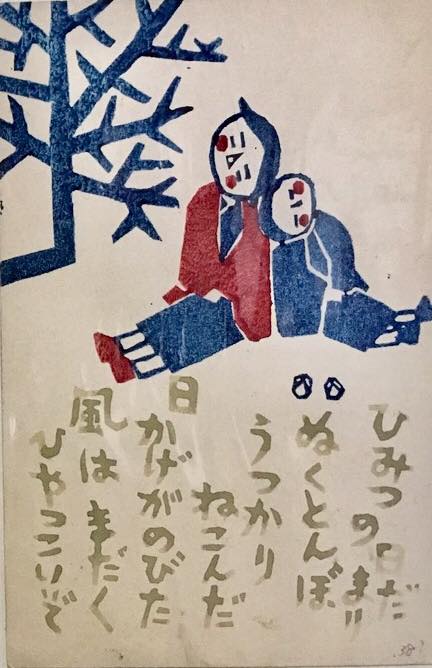 ひみつの日だまり
ぬくとんぼ
うつかり
ねこんだ
日かげがのびた
風はまだ〱
ひやつこいぞ